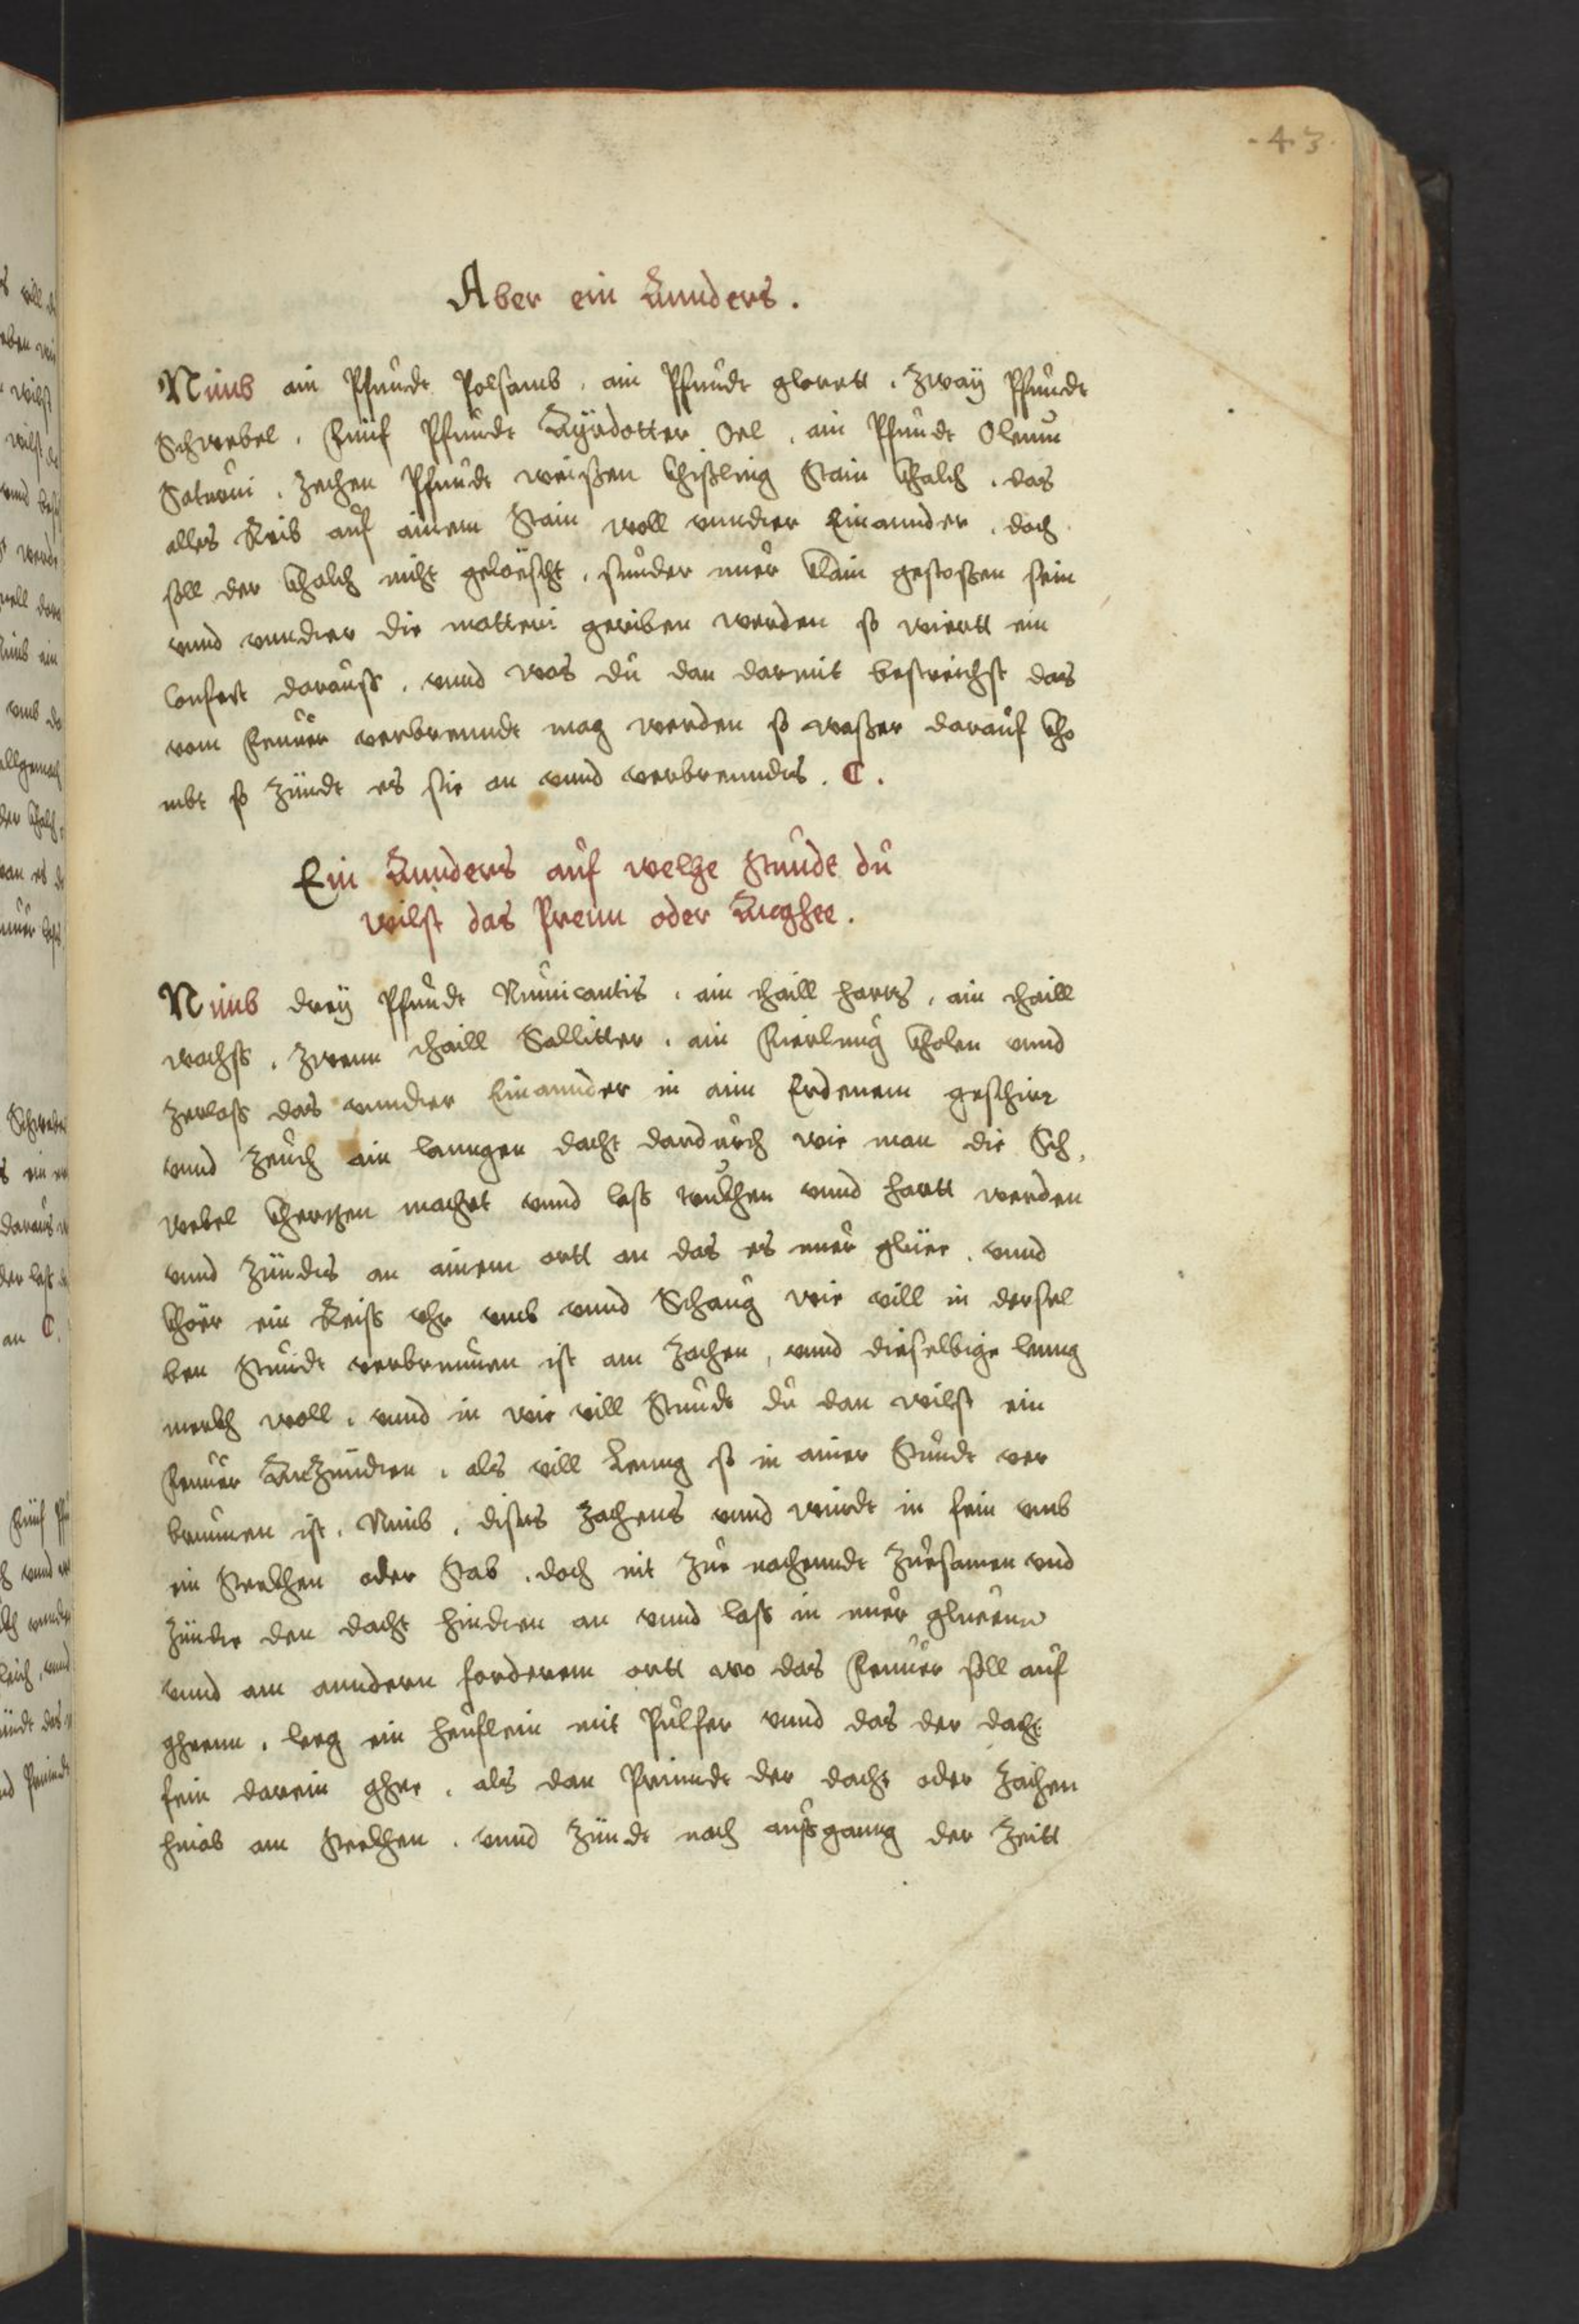 .43.
Aber ein Annders.
Nimb ain Pfundt Polsamb, ain Pfundt glorett, Zway Pfundt
Schwebel, Fünf Pfundt Ayrdotter Oel, ain Pfundt Oleum
Saturni, Zechen Pfundt weissen Khisling Stain Khalch, das
alles Reib auf ainem Stain woll vnndter Einannder, doch
soll der Khalch nicht gelöscht, sunder nuer klain gestossen sein
vnnd vnndter die matteri geriben werden so wiertt ein
Confect darauss, vnnd was du dan darmit bestreichst das
vom Feuuer verbrenndt mag werden so wasser darauf kho
mbt so Zündt es sie an vnnd verbrenndts. C.
Ein Annders auf welhe Stundt du
wilst das Prenn oder Anghee.
Nimb drey Pfundt ain thaill hartz, ain thaill
wachss, Zwenn thaill Sallitter, ain Fierlung Kholen vnnd
Zerlass das vnndter Einannder in aim Erdenem geschier
vnnd Zeuch ain lanngen dacht dardurch wie man die Sch,
webel Khertzen machet vnnd lass truckhen vnnd hartt werden
vnnd Zündts an ainem ortt an das es nuer glüee, vnnd
Khör ein Reiss vhr vmb vnnd Schaug wie vill in dersel
ben Stundt verbrunnen ist am Zachen, vnnd dieselbige leng
merkh woll, vnnd in wie vill Stundt du dan wilst ein
Feuuer AnZündten, als vill Lenng so in ainer Stundt ver
brunnen ist, Nimb, dises Zachens vnnd windt in fein vmb
ein Steckhen oder Stab, doch nit Zue nachenndt Zuesamen vnd
Zündte den dacht hindten an vnnd lass in nuer glueenn
vnnd am anndern forderem ortt wo das Feuuer soll auf
gheenn, leeg ein heuflein mit Pulfer vnnd das der dacht
fein darein ghee, als dan Prinndt der dacht oder Zachen
hinab am Steckhen, vnnd Zündt nach aussganng der Zeitt